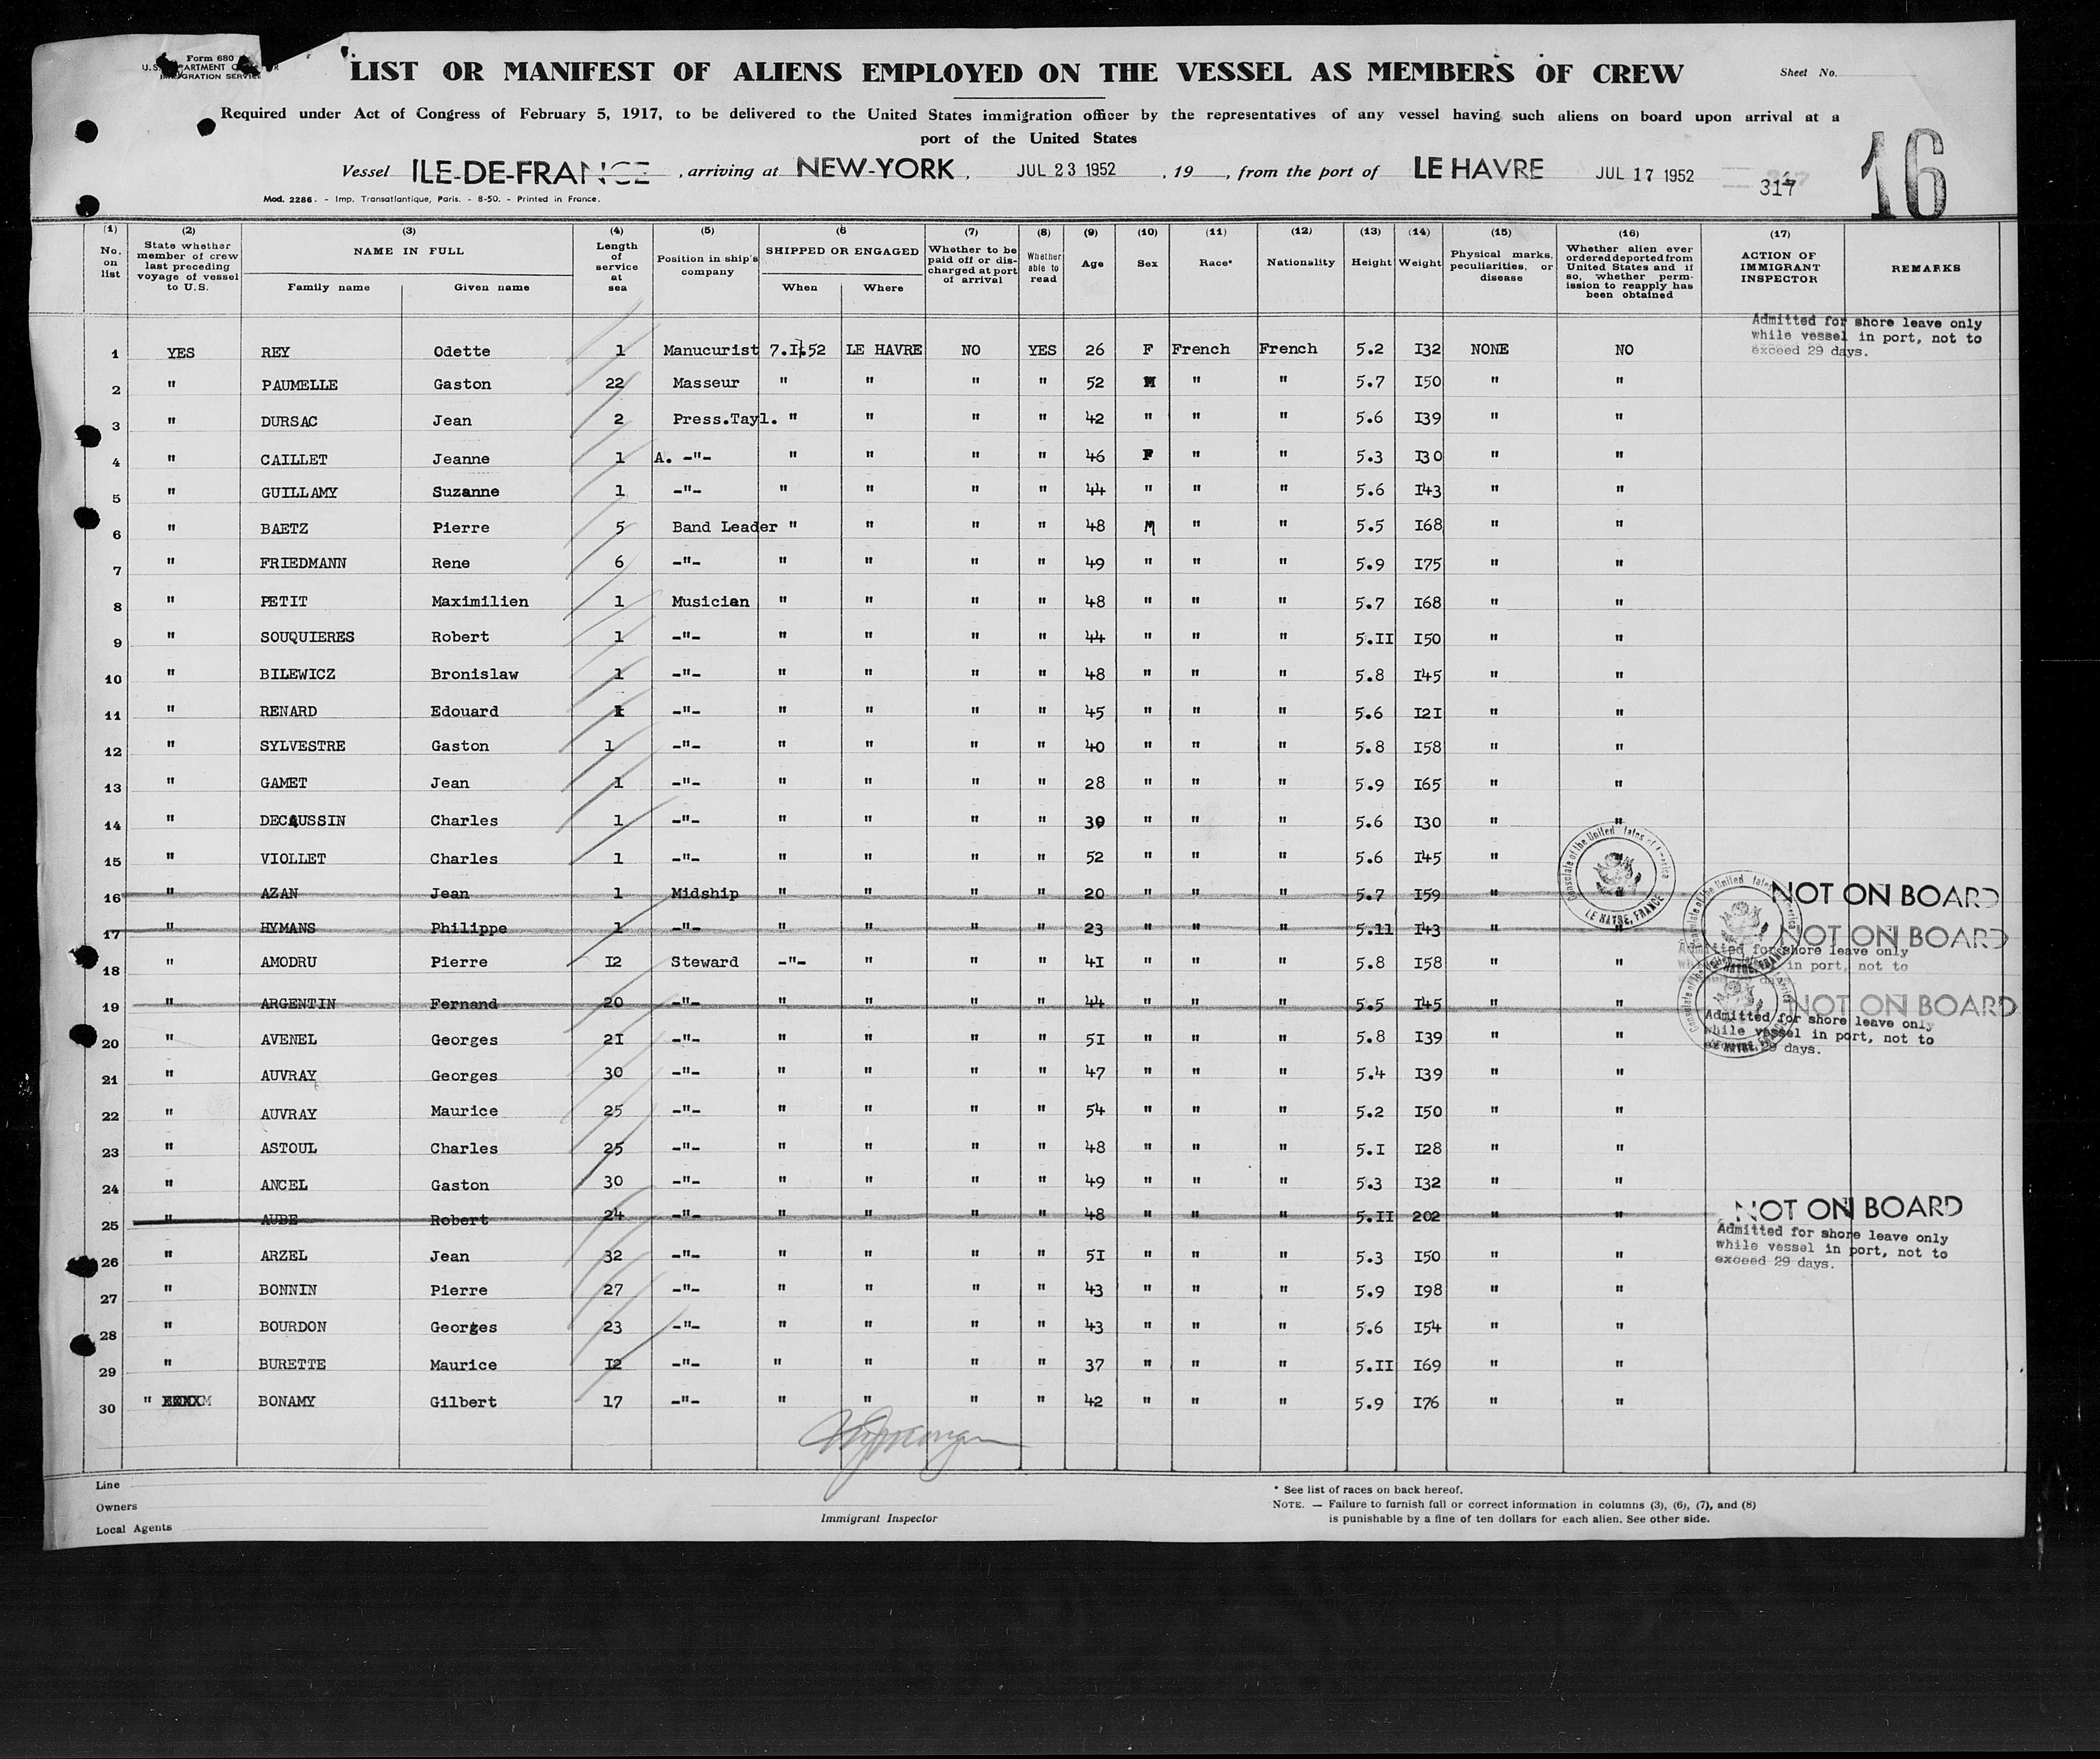 Form 680
LIST OR MANIFEST OF ALIENS EMPLOYED ON THE VESSEL AS MEMBERS OF CREW
Sheet No.
Required under Act of Congress of February 5, 1917, to be delivered to the United States immigration officer by the representatives of any vessel having such aliens on board upon arrival at a
port of the United States
Vessel ILE-DE-FRANCE, arriving at NEW-YORK, JUL 23 1952, 19 , from the port of LE HAVRE JUL 17 1952
317
16
Mod. 2286. - Imp. Transatlantique, Paris. - 8-50. - Printed in France.
(1) No. on list
(2) State whether member of crew last preceding voyage of vessel to U.S.
(3) NAME IN FULL Family name Given name
(4) Length of service at sea
(5) Position in ship's company
(6 SHIPPED OR ENGAGED When Where
(7) Whether to be paid off or discharged at port of arrival
(8) Whether able to read
(9) Age
(10) Sex
(11) Race*
(12) Nationality
(13) Height
(14) Weight
(15) Physical marks, peculiarities, or disease
(16) Whether alien ever ordered deported from United States and if so, whether permission to reapply has been obtained
(17) ACTION OF IMMIGRANT INSPECTOR
REMARKS
1 YES REY Odette 1 Manucurist 7.I.52 LE HAVRE NO YES 26 F French French 5.2 I32 NONE NO Admitted for shore leave only while vessel in port, not to exceed 29 days.
2 " PAUMELLE Gaston 22 Masseur " " " " 52 M " " 5.7 I50 " "
3 " DURSAC Jean 2 Press.Tayl. " " " " 42 " " " 5.6 I39 " "
4 " CAILLET Jeanne 1 A. -"- " " " " 46 F " " 5.3 I30 " "
5 " GUILLAMY Suzanne 1 -"- " " " " 44 " " " 5.6 I43 " "
6 " BAETZ Pierre 5 Band Leader " " " " 48 M " " 5.5 I68 " "
7 " FRIEDMANN Rene 6 -"- " " " " 49 " " " 5.9 I75 " "
8 " PETIT Maximilien 1 Musician " " " " 48 " " " 5.7 I68 " "
9 " SOUQUIERES Robert 1 -"- " " " " 44 " " " 5.II I50 " "
10 " BILEWICZ Bronislaw 1 -"- " " " " 48 " " " 5.8 I45 " "
11 " RENARD Edouard 1 -"- " " " " 45 " " " 5.6 I2I " "
12 " SYLVESTRE Gaston 1 -"- " " " " 40 " " " 5.8 I58 " "
13 " GAMET Jean 1 -"- " " " " 28 " " " 5.9 I65 " "
14 " DECAUSSIN Charles 1 -"- " " " " 39 " " " 5.6 I30 " "
15 " VIOLLET Charles 1 -"- " " " " 52 " " " 5.6 I45 "
16 " AZAN Jean 1 Midship " " " " 20 " " " 5.7 I59 " " NOT ON BOARD
17 " HYMANS Philippe 1 -"- " " " " 23 " " " 5.11 I43 " " NOT ON BOARD
18 " AMODRU Pierre I2 Steward -"- " " " 4I " " " 5.8 I58 " " Admitted for shore leave only in port, not to
19 " ARGENTIN Fernand 20 -"- " " " " 44 " " " 5.5 I45 " " NOT ON BOARD
20 " AVENEL Georges 2I -"- " " " " 5I " " " 5.8 I39 " " Admitted for shore leave only while vessel in port, not to 29 days.
21 " AUVRAY Georges 30 -"- " " " " 47 " " " 5.4 I39 " "
22 " AUVRAY Maurice 25 -"- " " " " 54 " " " 5.2 I50 " "
23 " ASTOUL Charles 25 -"- " " " " 48 " " " 5.I I28 " "
24 " ANCEL Gaston 30 -"- " " " " 49 " " " 5.3 I32 " "
25 " AUBE Robert 24 -"- " " " " 48 " " " 5.II 202 " " NOT ON BOARD
26 " ARZEL Jean 32 -"- " " " " 5I " " " 5.3 I50 " " Admitted for shore leave only while vessel in port, not to exceed 29 days.
27 " BONNIN Pierre 27 -"- " " " " 43 " " " 5.9 I98 " "
28 " BOURDON Georges 23 -"- " " " " 43 " " " 5.6 I54 " "
29 " BURETTE Maurice I2 -"- " " " " 37 " " " 5.II I69 " "
30 " BONAMY Gilbert 17 -"- " " " " 42 " " " 5.9 I76 " "
Consulate of the United States of America
LE HAVRE, FRANCE
Line
Owners
Local Agents
Immigrant Inspector
* See list of races on back hereof.
NOTE. — Failure to furnish full or correct information in columns (3), (6), (7), and (8)
is punishable by a fine of ten dollars for each alien. See other side.